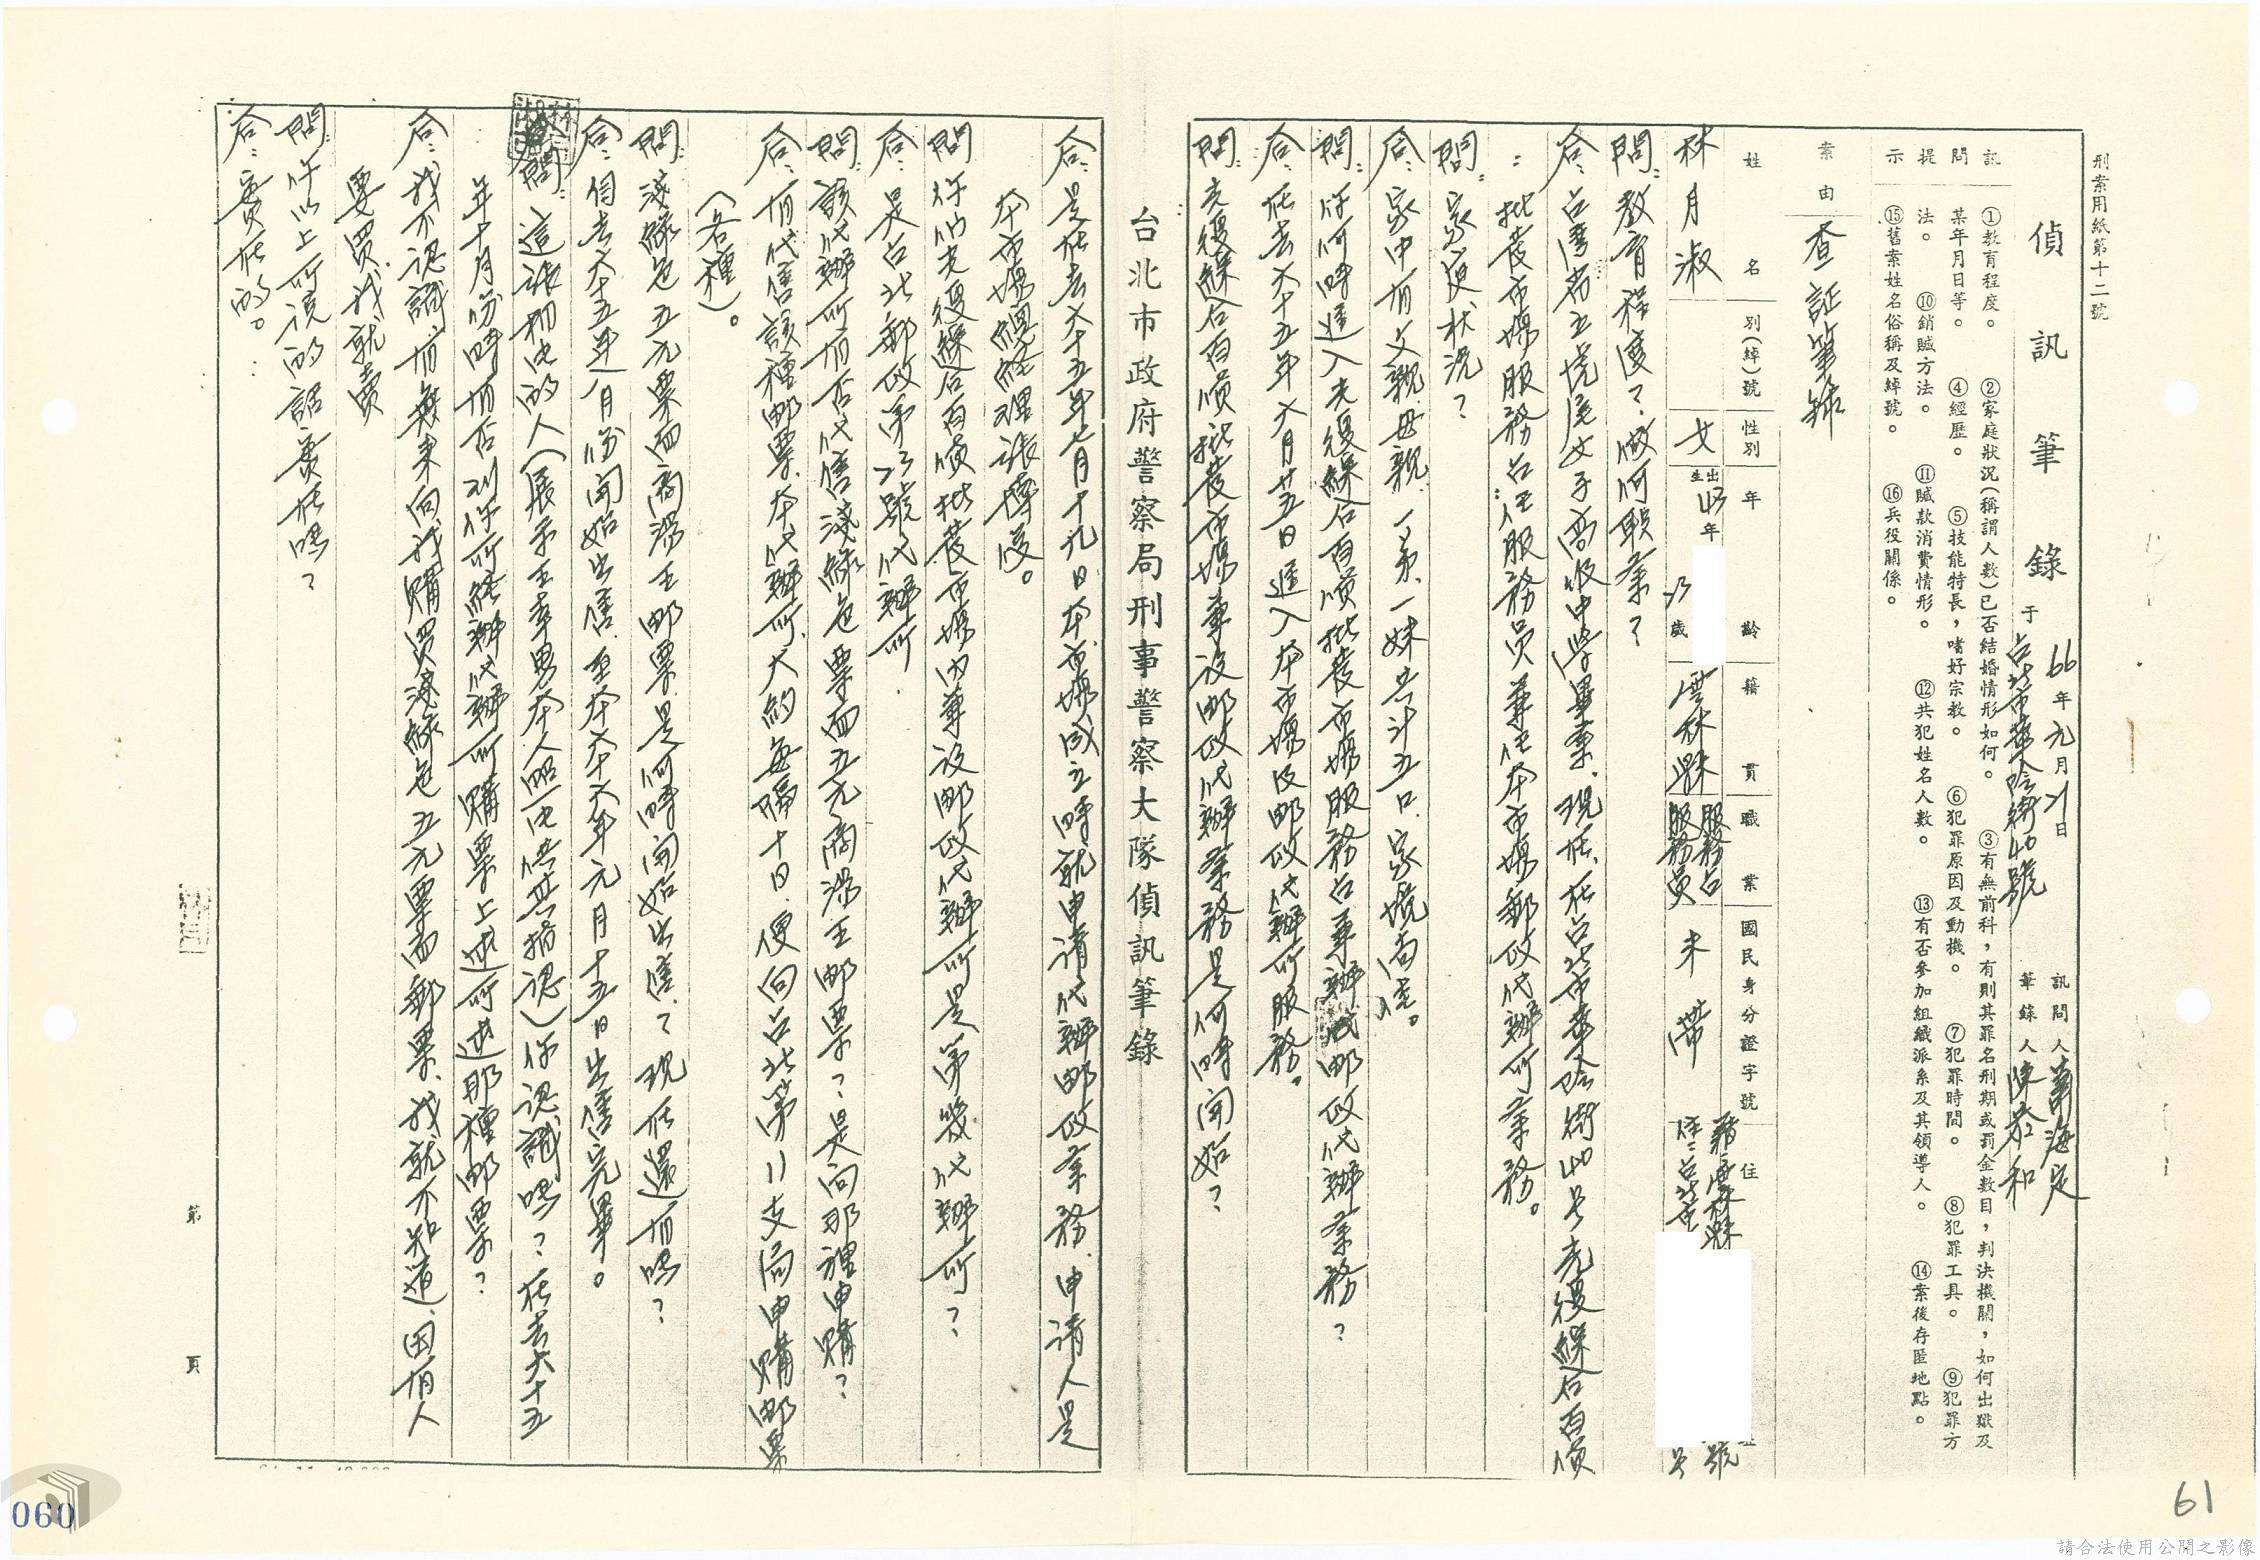 刑案用紙第十二號
偵訊筆錄 于台北市華陰街40號
66年元月21日
訊問人 筆錄人 陳恭和
訊問提示
①教育程度。 ②家庭狀況(稱謂人數)已否結婚情形如何。 ③有無前科,有則其罪名刑期或罰金數目,判決機關,如何出獄及
某年月日等。 ④經歷。 ⑤技能特長,嗜好宗教。 ⑥犯罪原因及動機。 ⑦犯罪時間。 ⑧犯罪工具。 ⑨犯罪方
法。 ⑩銷贓方法。 ⑪贓款消費情形。 ⑫共犯姓名人數。 ⑬有否參加組織派系及其領導人。 ⑭案後存匿地點。
⑮舊案姓名俗稱及綽號。 ⑯兵役關係。
案由 查証筆錄
姓名 別(綽)號 性別 年齡 籍貫 職業 國民身分證字號 住
林月淑 女 出生43年 23歲 雲林縣 服務台服務員 未帶 籍:雲林縣 號
住:台北市 號
問:教育程度?做何職業?
答:台灣省立虎尾女子高級中學畢業、現在、在台北市華陰街40號光復綜合百貨
批發市場服務台任服務員兼任本市場郵政代辦所業務。
問:家庭狀況?
答:家中有父親、母親、一弟、一妹共計五口、家境尚佳。
問:你何時進入光復綜合百貨批發市場服務台兼辦郵政代辦業務?
答:在去六十五年六月廿五日進入本市場及郵政代辦所服務。
問:光復綜合百貨批發市場兼設郵政代辦業務是何時開始?
台北市政府警察局刑事警察大隊偵訊筆錄
答:是在去六十五年七月十九日本市場成立時就申請代辦郵政業務、申請人是
本市場總經理張博俊。
問:你們光復綜合百貨批發市場內兼設郵政代辦所是第幾代辦所?
答:是台北郵政第23號代辦所。
問:該代辦所有否代售淺綠色票面五元商湯王郵票?是向那裡申購?
答:有代售該種郵票、本代辦所、大約每隔十日、便向台北第11支局申購郵票
(各種)。
問:淺綠色五元票面商湯王郵票是何時開始出售?現在還有嗎?
答:自去六十五年一月份開始出售、至本六十六年元月十五日出售完畢。
問:這張相片的人(展示王幸男本人照片供其指認)你認識嗎?在去六十五
年十月份時有否到你所經辦代辦所購票上述所述那種郵票?
答:我不認識、有無來向我購買淺綠色五元票面郵票、我就不知道、因有人
要買、我就賣
問:你以上所說的話實在嗎?
答:實在的。
第 頁
060
61
請合法使用公開之影像